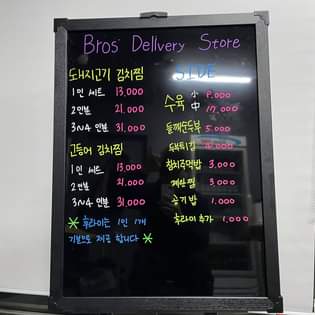 Bros' Delivery Store
돼지고기 김치찜
1인 세트 13,000
2인분 21,000
3~4 인분 31,000
고등어 김치찜
1인 세트 13,000
2인분 21,000
3~4 인분 31,000
* 후라이는 1인 1개
기본으로 제공 합니다 *
SIDE
수육 小 9,000
中 17,000
들깨순두부 5,000
두부튀김
참치주먹밥 3,000
계란찜 3000
공기밥 1.000
후라이 추가 1.000